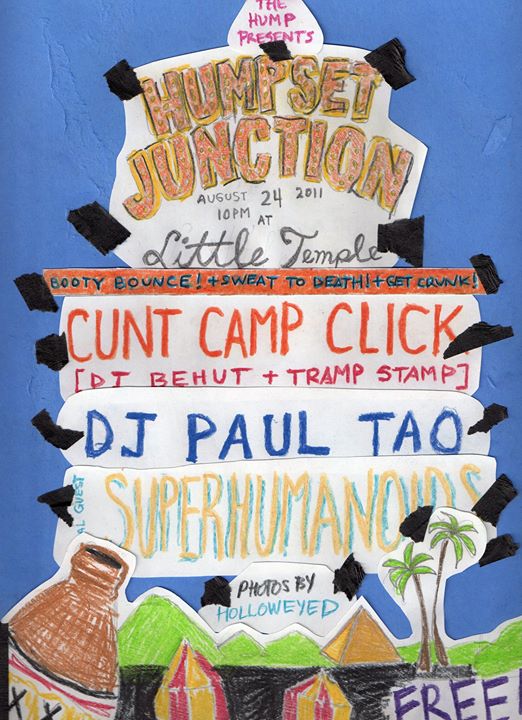 THE
HUMP
PRESENTS
HUMPSET
JUNCTION
AUGUST 24 2011
10PM AT
Little Temple
BOOTY BOUNCE! + SWEAT TO DEATH! + GET CRUNK!
CUNT CAMP CLICK
[DJ BEHUT + TRAMP STAMP]
DJ PAUL TAO
AL GUEST
SUPERHUMANOIDS
PHOTOS BY
HOLLOWEYED
XX
FREE!